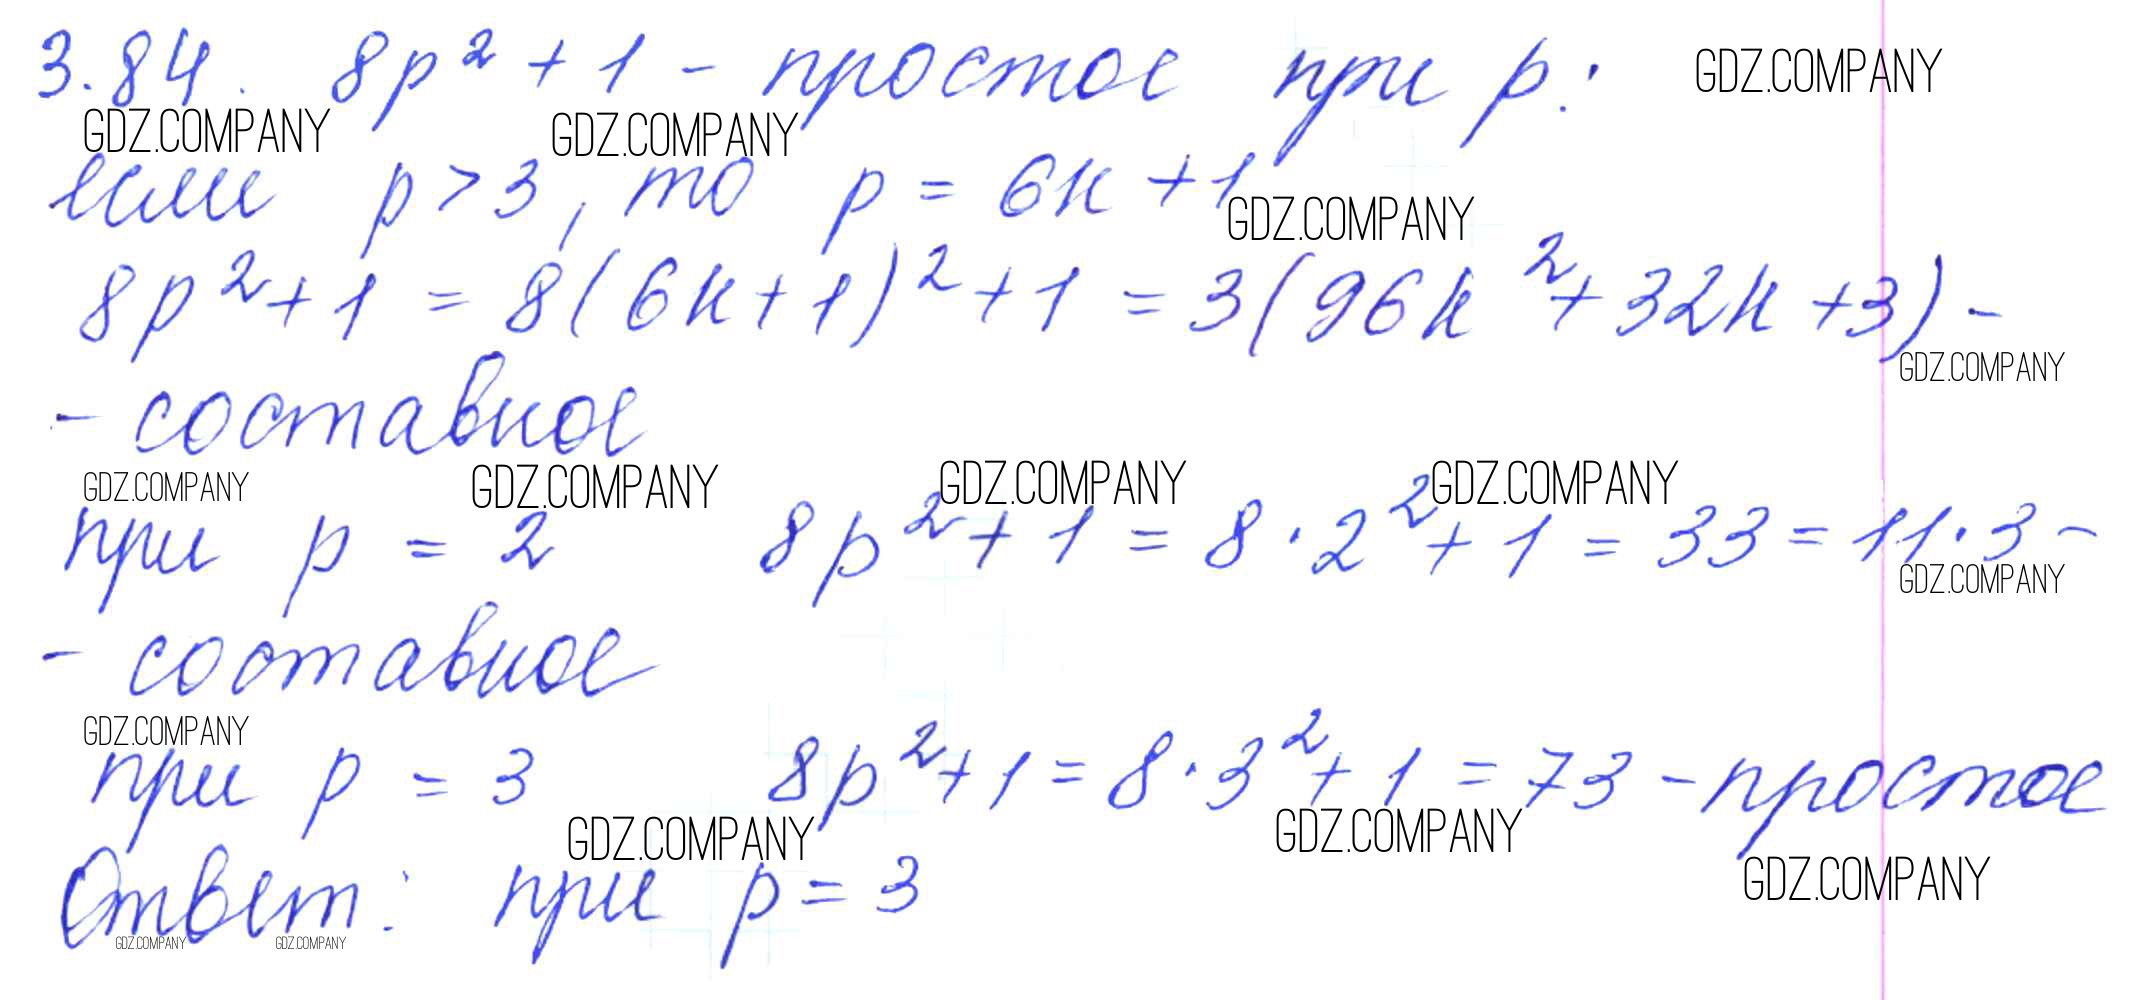 3.84. 8p² + 1 - простое при p:
GDZ.COMPANY
GDZ.COMPANY GDZ.COMPANY
если p > 3, то p = 6k + 1
GDZ.COMPANY
8p² + 1 = 8(6k + 1)² + 1 = 3(96k² + 32k + 3) -
GDZ.COMPANY
- составное
GDZ.COMPANY GDZ.COMPANY GDZ.COMPANY GDZ.COMPANY
при p = 2 8p² + 1 = 8 · 2² + 1 = 33 = 11 · 3 -
GDZ.COMPANY
- составное
GDZ.COMPANY
при p = 3 8p² + 1 = 8 · 3² + 1 = 73 - простое
GDZ.COMPANY GDZ.COMPANY GDZ.COMPANY
Ответ: при p = 3
GDZ.COMPANY GDZ.COMPANY